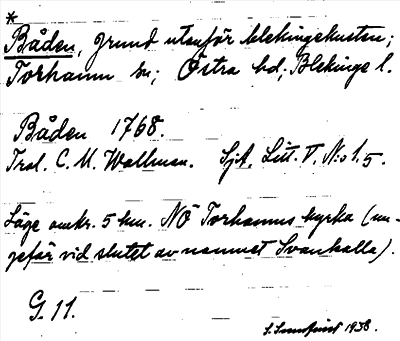 *
Båden, grund utanför blekingekusten;
Torhamn sn; Östra hd; Blekinge l.
Båden 1768.
Tral. C. M. Wallman. Sjk. Litt. V. No 1.5.
Läge omkr. 5 km. NÖ Torhamns kyrka (un-
gefär vid slutet av namnet Svankalla).
G. 11.
S. Sundqvist 1938.